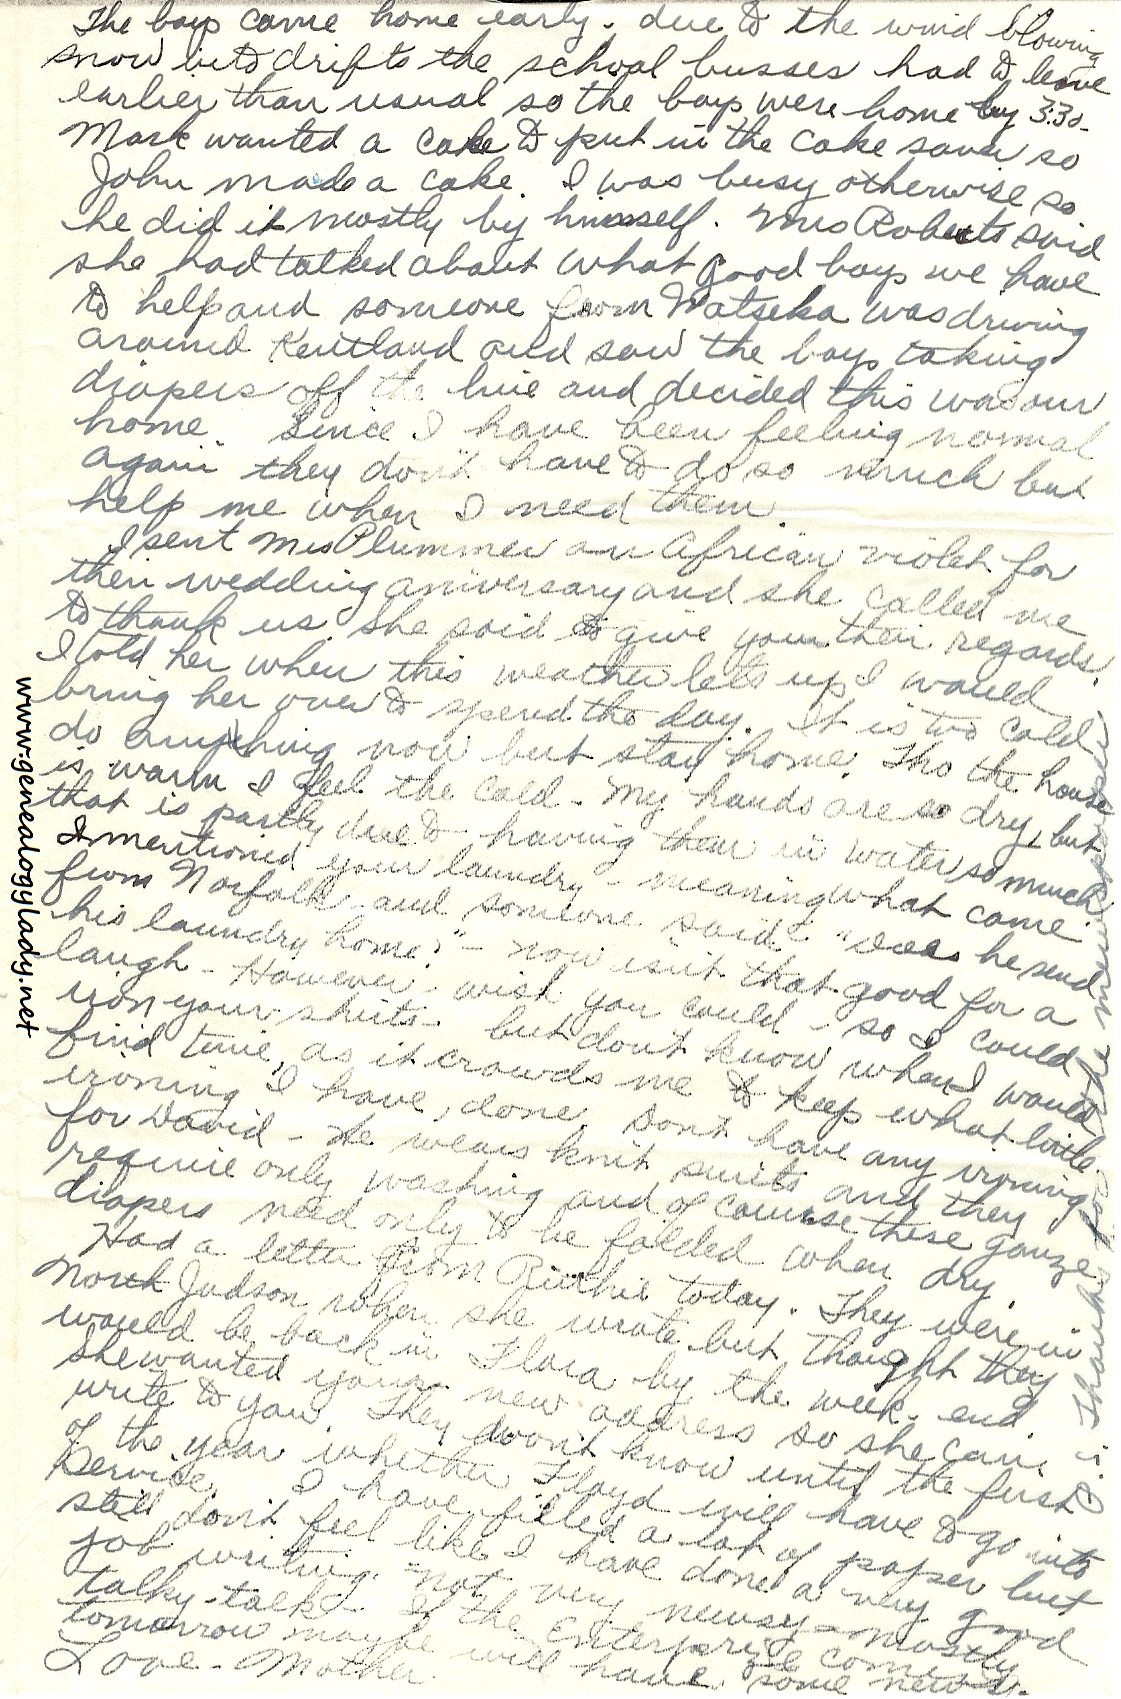 The boys came home early - due to the wind blowing
snow into drifts the school busses had to leave
earlier than usual so the boys were home by 3:30-
Mark wanted a cake to put in the cake saver so
John made a cake. I was busy otherwise so
he did it mostly by himself. Mrs Roberts said
she had talked about what good boys we have
to help and someone from Watseka was driving
around Kentland and saw the boys taking
diapers off the line and decided this was our
home. Since I have been feeling normal
again they don't have to do so much but
help me when I need them.
I sent Mrs Plummer an African violet for
their wedding aniversary and she called me
to thank us. She said to give you their regards.
I told her when this weather lets up I would
bring her over to spend the day. It is too cold to
do anything now but stay home. Tho the house
is warm I feel the cold - My hands are so dry, but
that is partly due to having them in water so much
I mentioned your laundry - meaning what came
from Norfolk - and someone said - "does he send
his laundry home?" - now isn't that good for a
laugh - However - wish you could - so I could
iron your shirts - but dont know when I would
find time, as it crowds me to keep what little
ironing I have, done. Don't have any ironing
for David - He wears knit suits and they
require only washing and of course these gauze
diapers need only to be folded when dry.
Had a letter from Ruthie today. They were in
North Judson when she wrote but thought they
would be back in Flora by the week-end
She wanted your new address so she can
write to you. They don't know until the first
of the year whether Floyd will have to go into
Service. I have filled a lot of paper but
still don't feel like I have done a very good
job writing. "not very newsy - mostly
talky-talk - If the Enterprise comes
tomorrow maybe will have some news.
Love - Mother.
www.genealogylady.net